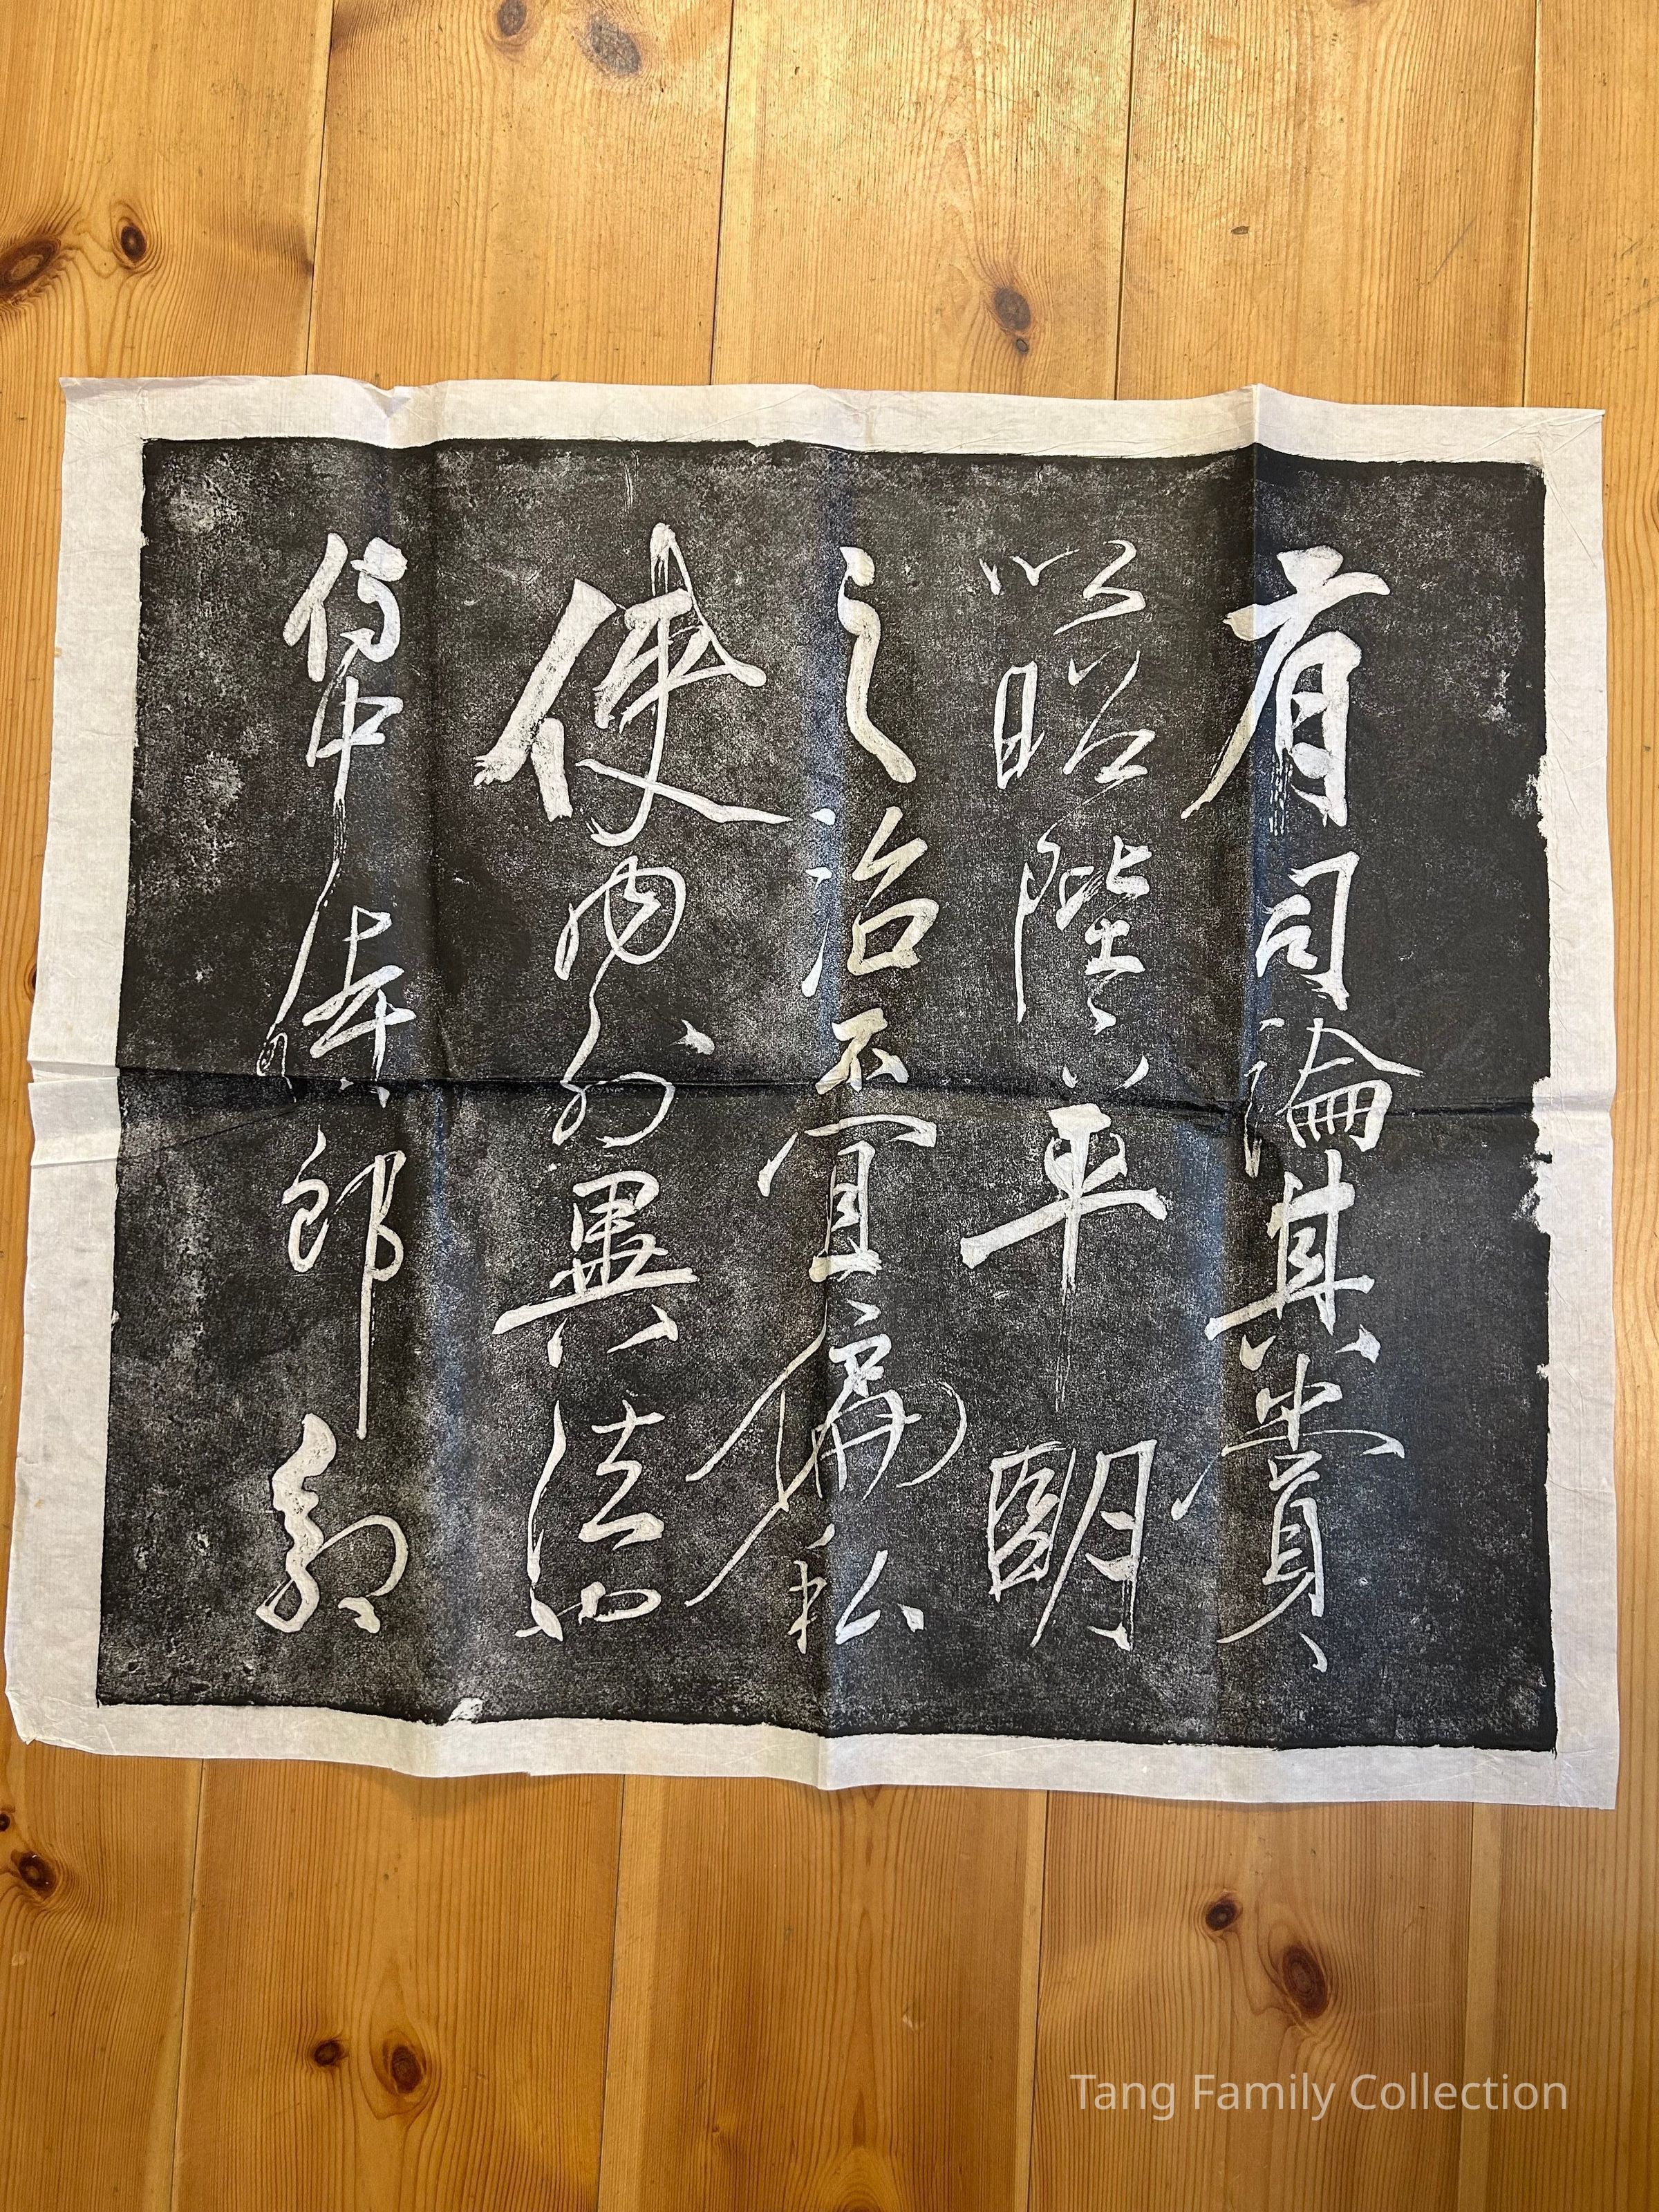 有司論其賞
以昭陛下平明
之治不宜偏私
使內外異法也
侍中侍郎郭
Tang Family Collection